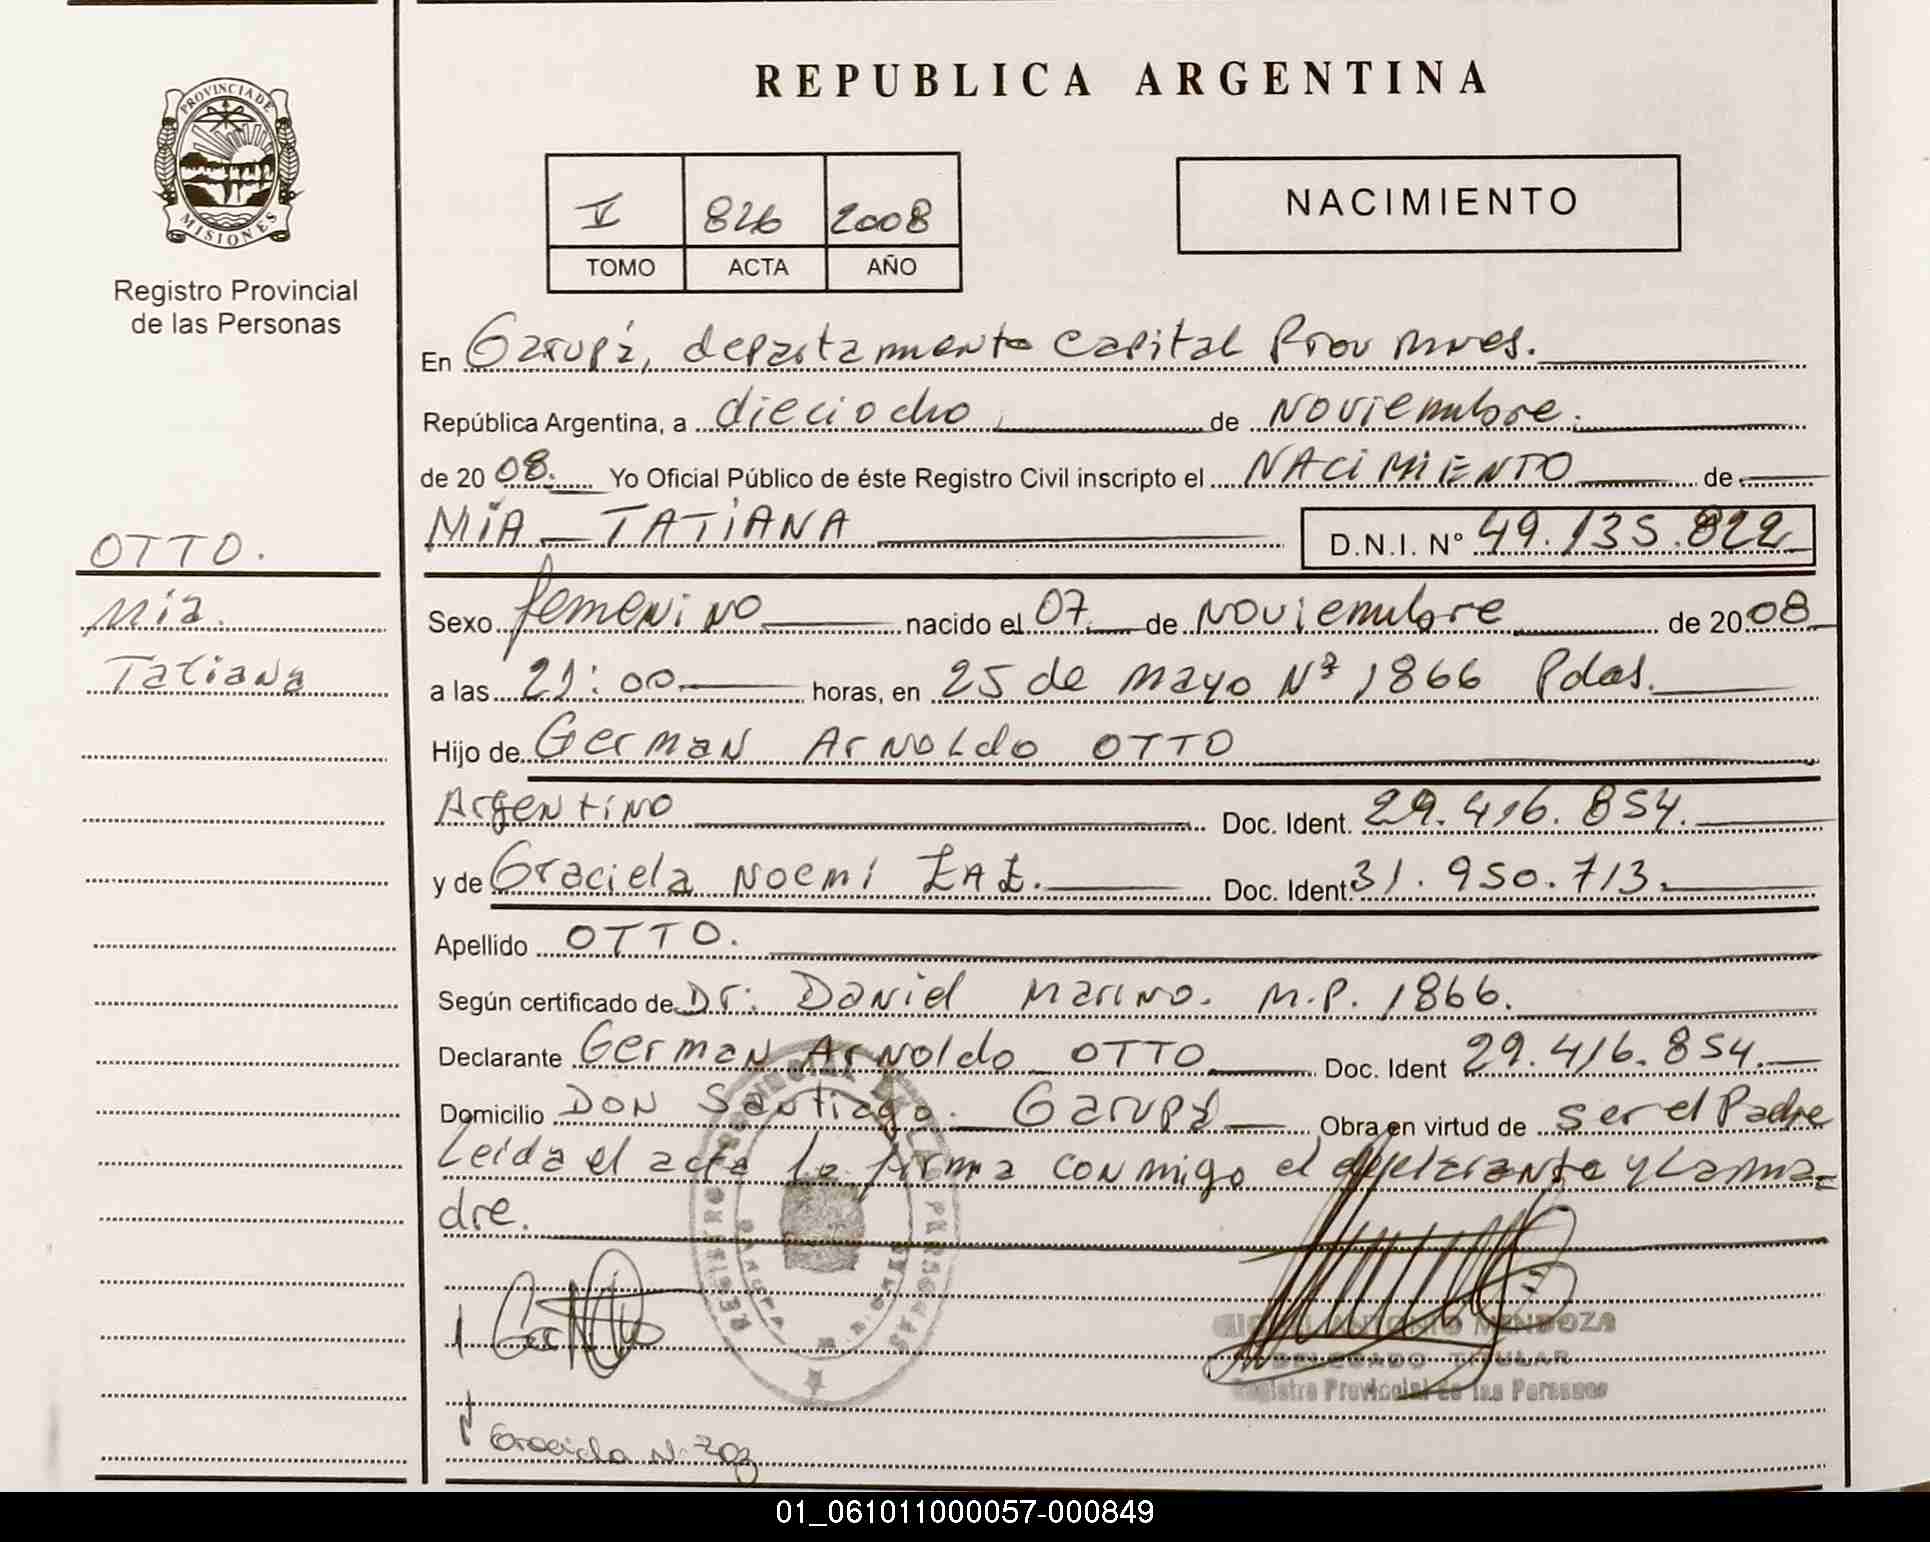 PROVINCIA DE
MISIONES
Registro Provincial
de las Personas
OTTO.
Mia.
Tatiana
REPUBLICA ARGENTINA
V 826 2008
TOMO ACTA AÑO
NACIMIENTO
En Garupá, departamento Capital Prov Mnes.
República Argentina, a dieciocho de Noviembre.
de 2008. Yo Oficial Público de éste Registro Civil inscripto el NACIMIENTO de
MIA TATIANA D.N.I. N° 49.135.822
Sexo femenino nacido el 07 de Noviembre de 2008
a las 21:00 horas, en 25 de mayo Nº 1866 Pdas.
Hijo de German Arnoldo OTTO
Argentino Doc. Ident. 29.416.854.
y de Graciela Noemi ZAZ. Doc. Ident. 31.950.713.
Apellido OTTO.
Según certificado de Dr: Daniel Marino. M.P. 1866.
Declarante German Arnoldo OTTO Doc. Ident 29.416.854.
Domicilio Don Santiago. Garupá Obra en virtud de ser el Padre
Leida el acta la firma conmigo el declarante y La ma-
dre.
ANTONIO MENDOZA
DELEGADO TITULAR
Registro Provincial de las Personas
Graciela N. Zaz
01_061011000057-000849